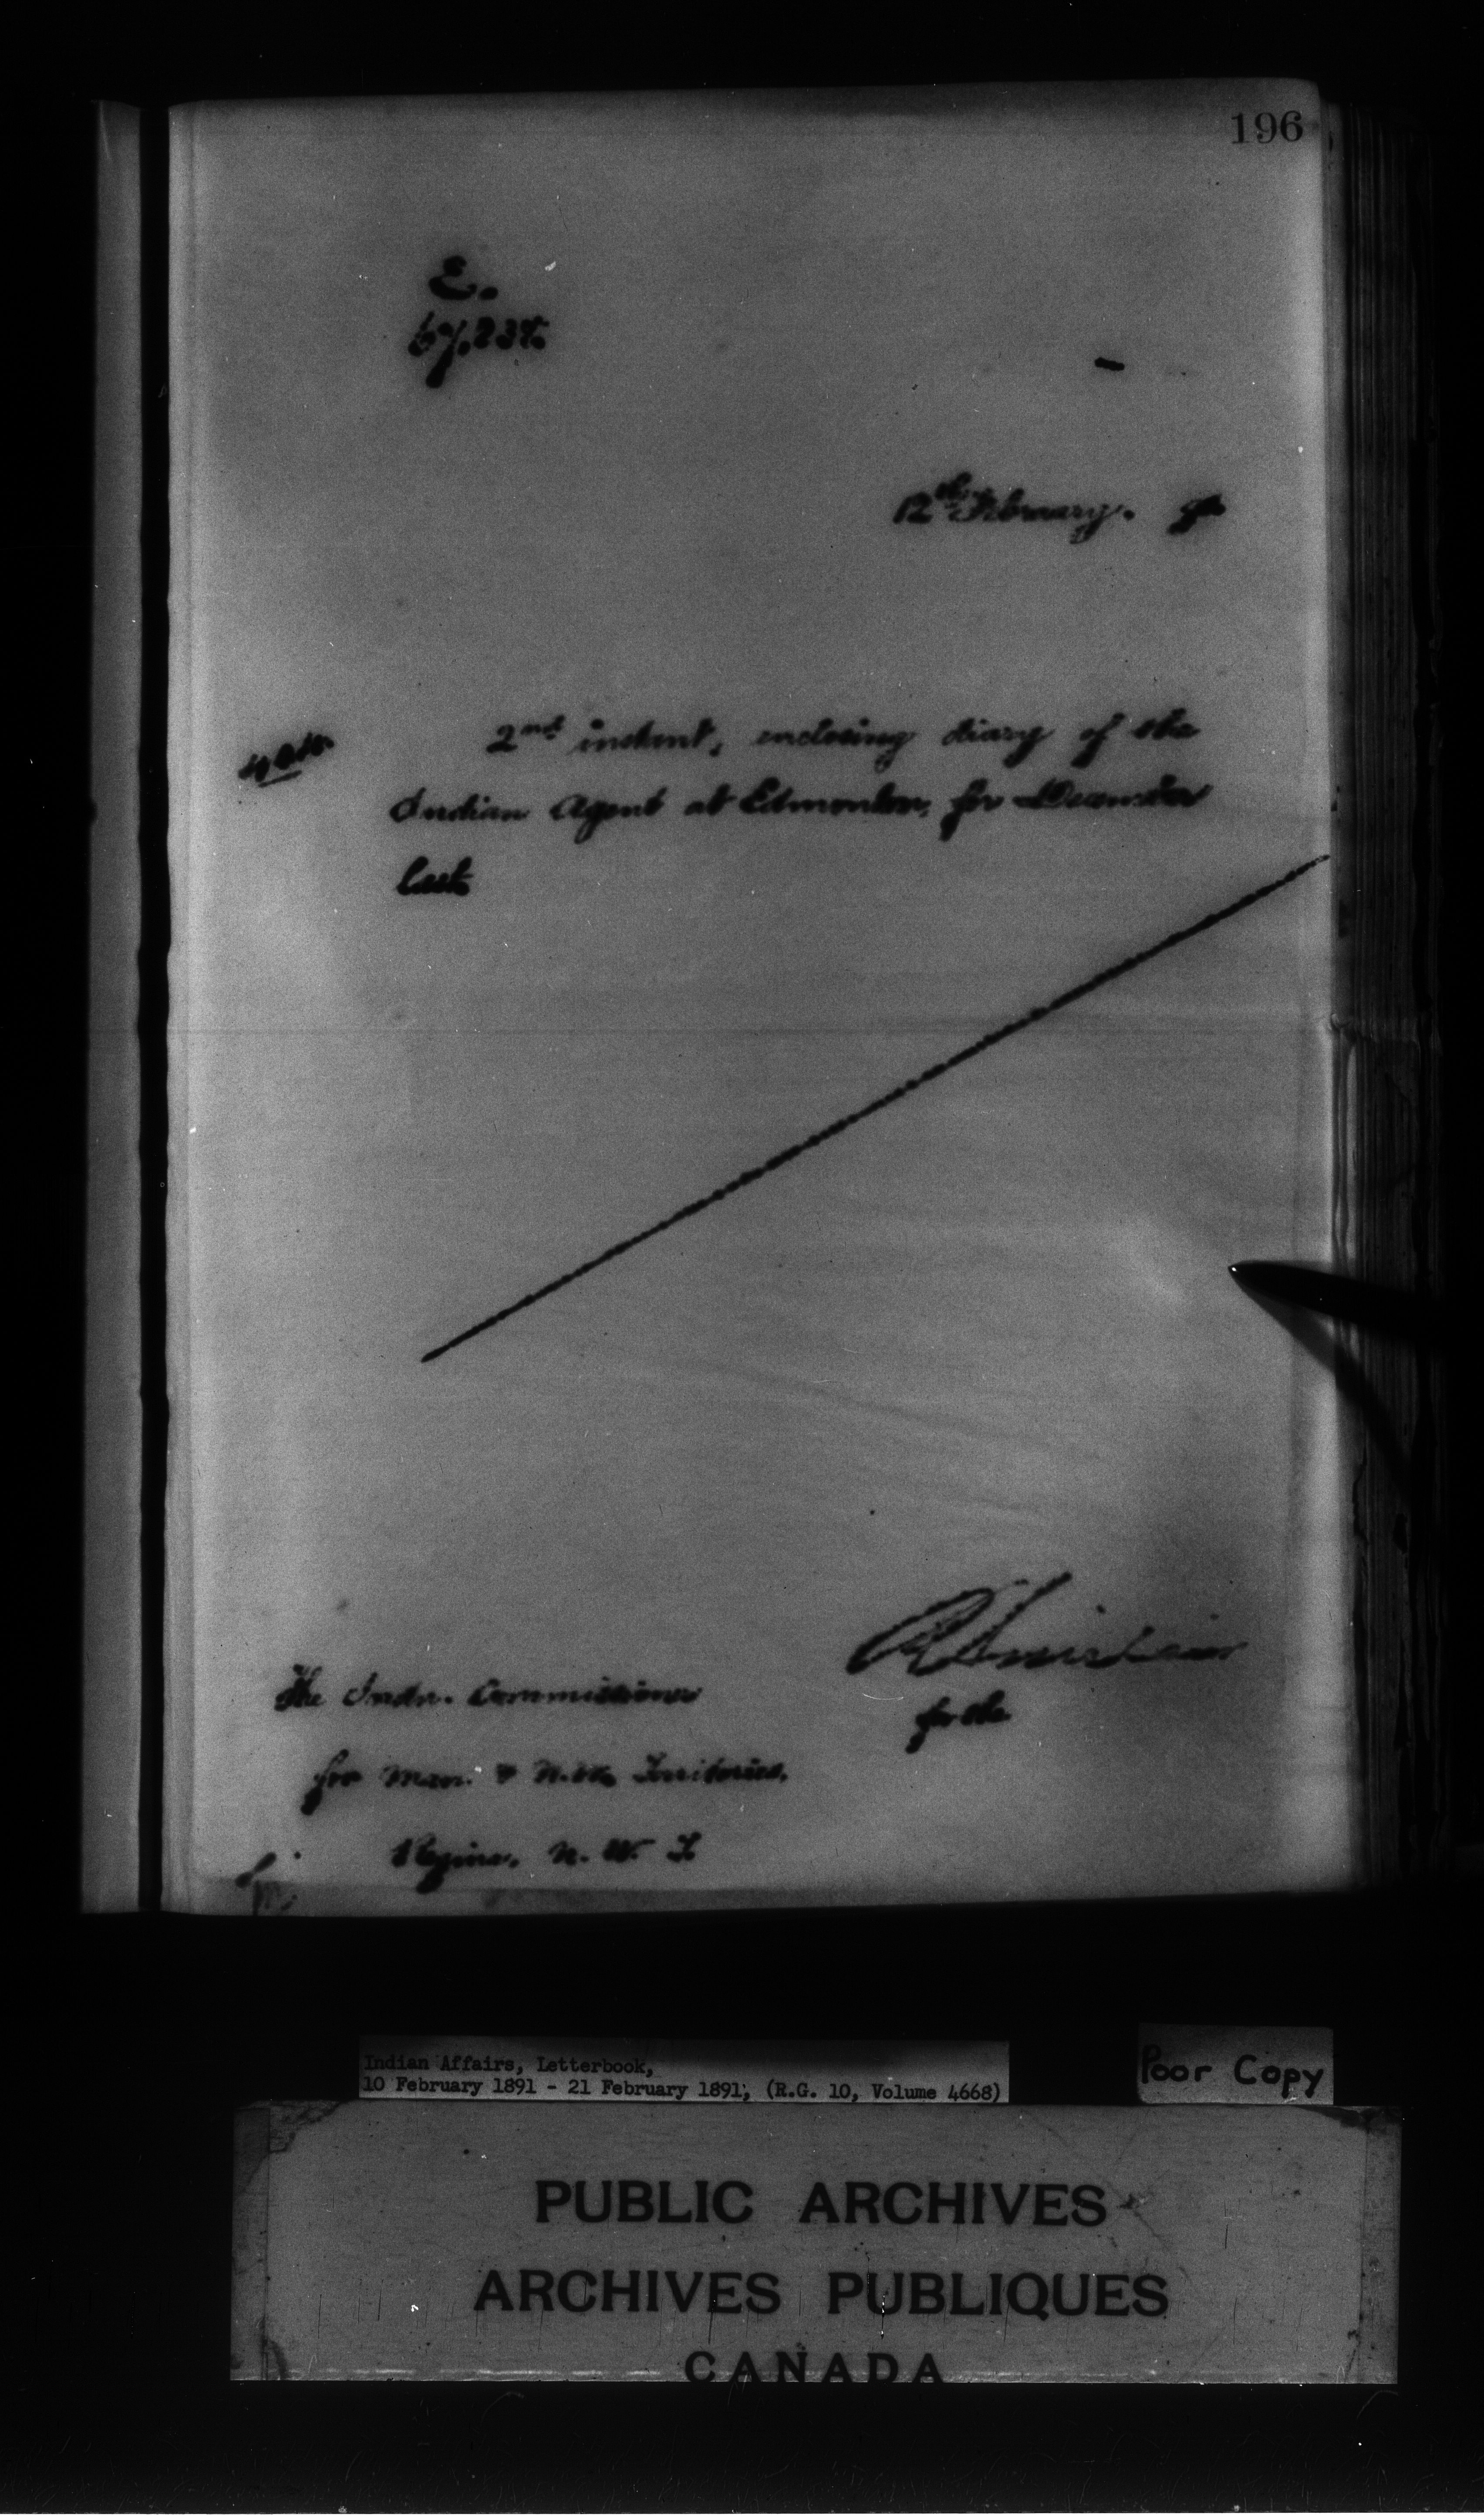 196
E.
67.234
12th February. 91
2nd instant, enclosing diary of the
Indian Agent at Edmonton, for December
last
R Sinclair
for the
The Indn. Commissioner
for Man. & N.W. Territories.
Regina, N. W. T
Indian Affairs, Letterbook,
10 February 1891 - 21 February 1891, (R.G. 10, Volume 4668)
Poor Copy
PUBLIC ARCHIVES
ARCHIVES PUBLIQUES
CANADA